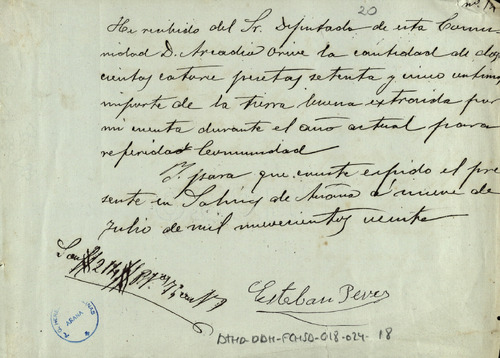 20
nº 18
He recibido del Sr. Diputado de esta Comu-
nidad D. Arcadio Orive la cantidad de dos
cientos catorce pesetas setenta y cinco centimos
importe de la tierra buena extraida por
mi cuenta durante el año actual para
referida Comunidad
Y para que conste expido el pre
sente en Salinas de Añana á nueve de
Julio de mil novecientos veinte
Son 214 Ptas 75 cts
Esteban Perez
AÑANA
ATHA-DDH-FCHSD-018-024-18